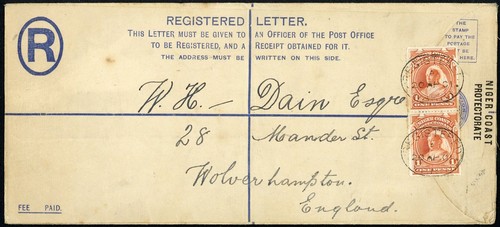 REGISTERED LETTER.
THIS LETTER MUST BE GIVEN TO AN OFFICER OF THE POST OFFICE
TO BE REGISTERED, AND A RECEIPT OBTAINED FOR IT.
THE ADDRESS MUST BE WRITTEN ON THIS SIDE.
R
THE STAMP
TO PAY THE
POSTAGE
BE HERE.
NIGER COAST
PROTECTORATE
W. H. Dain Esqre
28 Mander St.
Wolverhampton.
England.
FEE PAID.